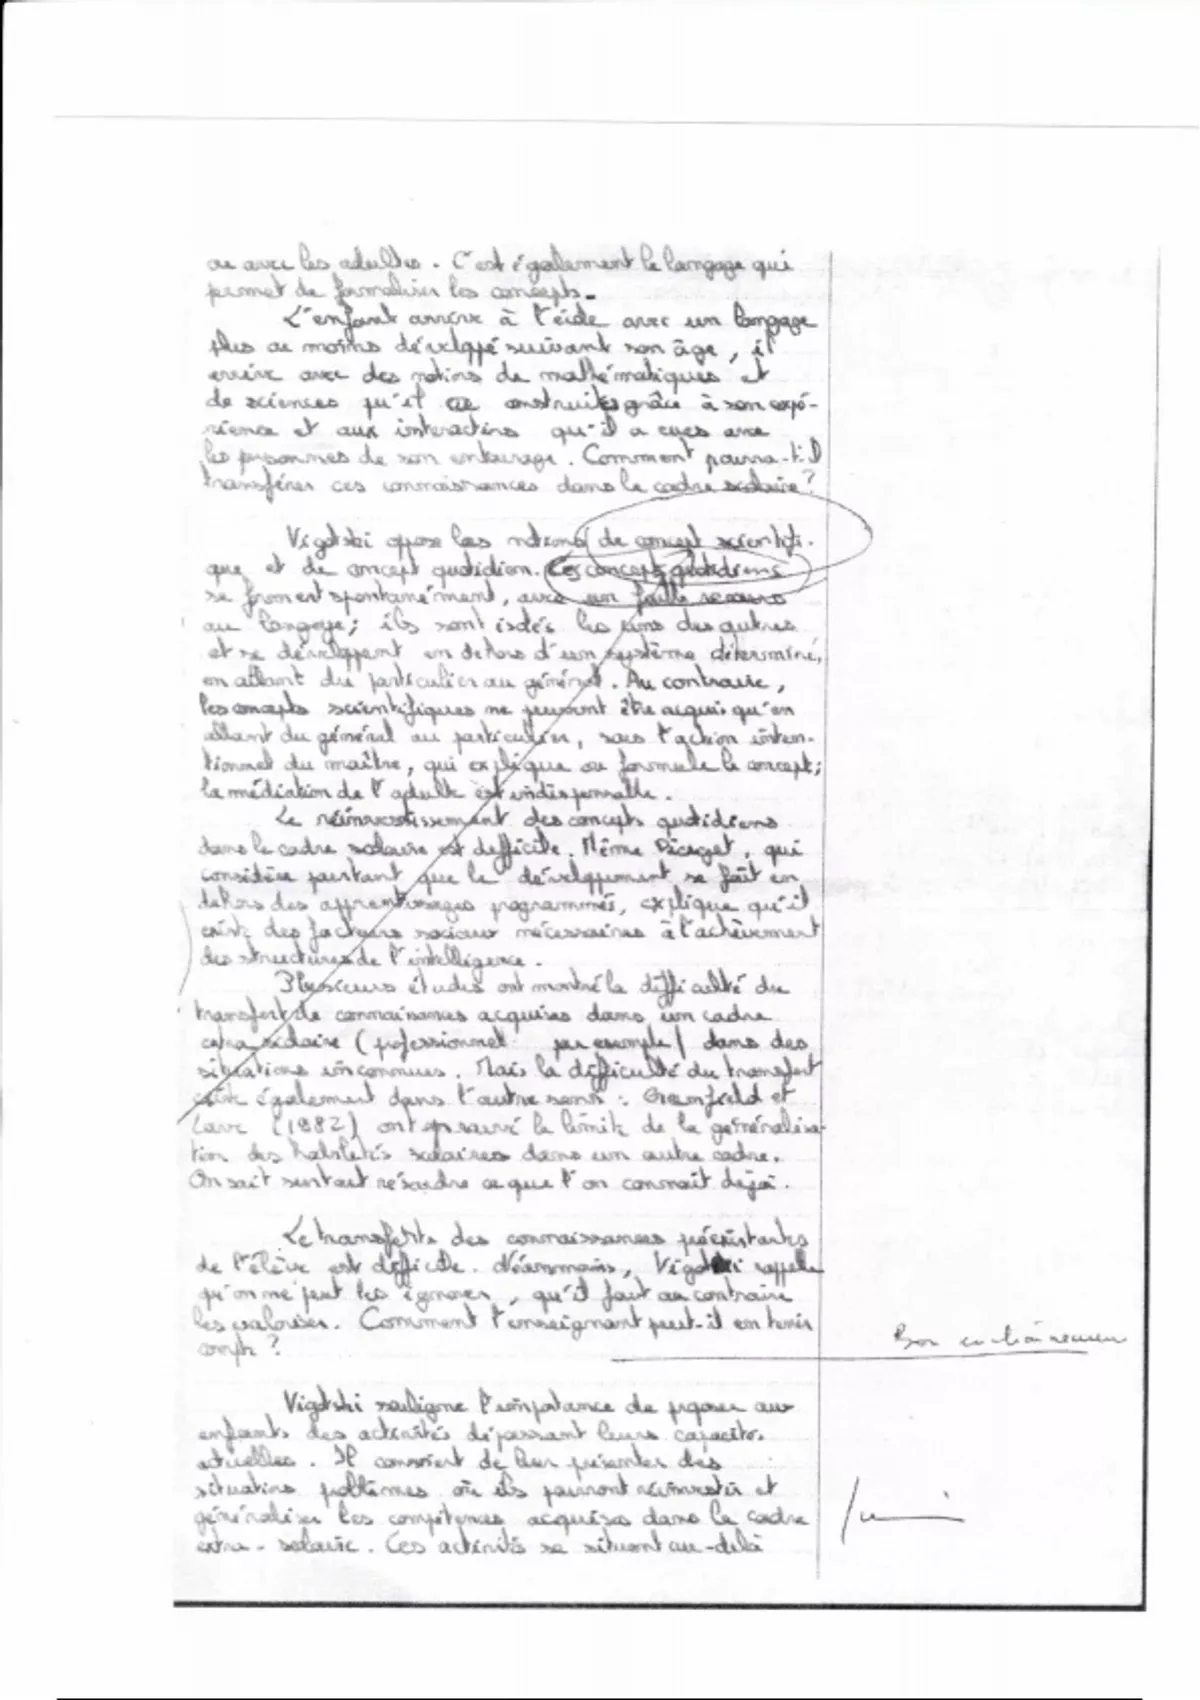 ou avec les adultes. C'est également le langage qui
permet de formaliser les concepts.
L'enfant arrive à l'école avec un langage
plus ou moins développé suivant son âge, il
arrive avec des notions de mathématiques et
de sciences qu'il a construites grâce à son expé-
rience et aux interactions qu'il a eues avec
les personnes de son entourage. Comment pourra-t-il
transférer ces connaissances dans le cadre scolaire ?
Vigotski oppose les notions de concept scientifi-
que et de concept quotidien. Les concepts quotidiens
se forment spontanément, avec un faible recours
au langage ; ils sont isolés les uns des autres
et se développent en dehors d'un système déterminé,
en allant du particulier au général. Au contraire,
les concepts scientifiques ne peuvent être acquis qu'en
allant du général au particulier, sous l'action inten-
tionnel du maître, qui explique ou formule le concept ;
la médiation de l'adulte est indispensable.
Le réinvestissement des concepts quotidiens
dans le cadre scolaire est difficile. Même Piaget, qui
considère pourtant que le développement se fait en
dehors des apprentissages programmés, explique qu'il
existe des facteurs sociaux nécessaires à l'achèvement
des structures de l'intelligence.
Plusieurs études ont montré la difficulté du
transfert de connaissances acquises dans un cadre
extra-scolaire (professionnel par exemple) dans des
situations inconnues. Mais la difficulté du transfert
existe également dans l'autre sens : Greenfield et
Lave (1982) ont prouvé la limite de la généralisa-
tion des habiletés scolaires dans un autre cadre.
On sait surtout résoudre ce que l'on connaît déjà.
Le transfert des connaissances préexistantes
de l'élève est difficile. Néanmoins, Vigotski rappelle
qu'on ne peut les ignorer, qu'il faut au contraire
les valoriser. Comment l'enseignant peut-il en tenir
compte ?
Vigotski souligne l'importance de proposer aux
enfants des activités dépassant leurs capacités
actuelles. Il convient de leur présenter des
situations problèmes où ils pourront réinvestir et
généraliser les compétences acquises dans le cadre
extra-scolaire. Ces activités se situent au-delà